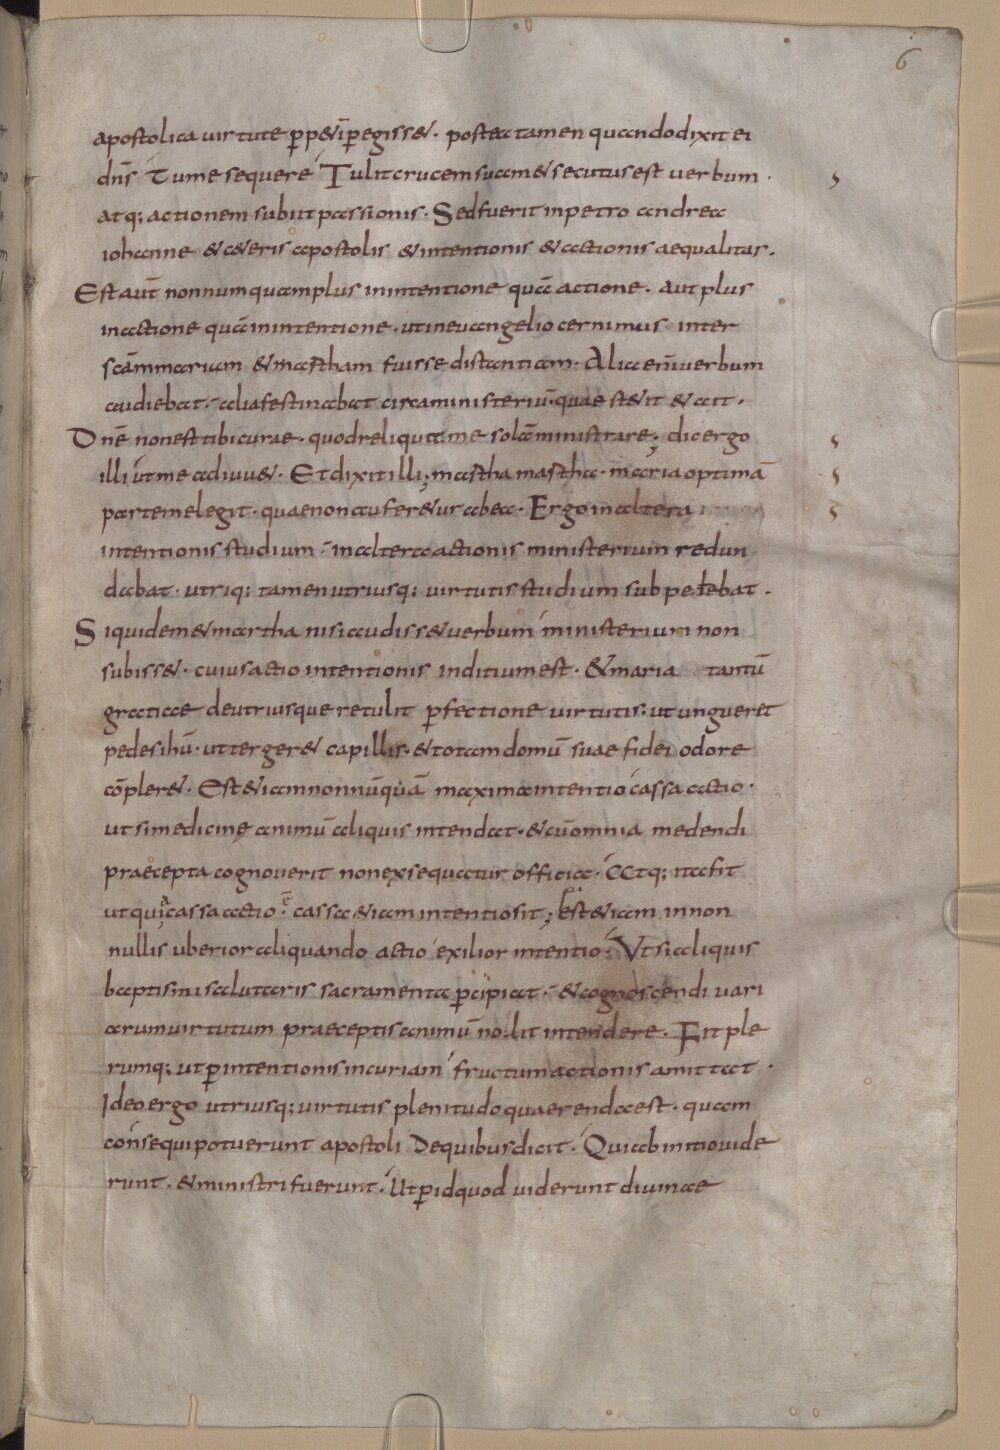 6
apostolica uirtute ꝑp&ī ꝑegiss&. postea tamen quando dixit ei
dn̄s Tu me sequere Tulit crucem suam & secutus est uerbum.
atq; actionem subiit passionis. Sed fuerit in petro andrea
iohanne & c&eris apostolis & intentionis & actionis aequalitas.
Est aut̄ non numquam plus in intentione quā actione. aut plus
in actione quā in intentione. ut in euangelio cernimus inter
scām mariam & martham fuisse distantiam. Alia eni uerbum
audiebat. alia festinabat circa ministeriū. quae st&it & ait.
Dn̄e non est tibi curae. quod reliquit me solā ministrare; dic ergo
illi ut me adiuu&. Et dixit illi; martha martha. maria optimā
partem elegit. quae non aufer&ur ab ea. Ergo in altera
intentionis studium. in altera actionis ministerium redun
dabat. utriq; tamen utriusq; uirtutis studium subpetebat.
Siquidem & martha nisi audiss& uerbum ministerium non
subiss&. cuius actio intentionis inditium est. & maria tantū
gratiae de utriusque retulit ꝑfectione uirtutis. ut ungueret
pedes ihū. ut terger& capillis. & totam domū suae fidei odore
cōpler&. Est & iam non nūquā maxima intentio cassa actio.
ut si medicinę animū aliquis intendat. & cū omnia medendi
praecepta cognouerit non exsequatur officia. Atq; ita fit
ut quia cassa actio ē cassa & iam intentio sit; Est & iam in non
nullis uberior aliquando actio exilior intentio. Vt si aliquis
baptismi salutaris sacramenta ꝑcipiat. & cognoscendi uari
arum uirtutum praeceptis animū nollit intendere. Fit ple
rumq; ut ꝑ intentionis incuriam fructum actionis amittat.
Ideo ergo utriusq; uirtutis plenitudo quaerenda est. quam
consequi potuerunt apostoli De quibus dicit. Qui ab initio uide
runt. & ministri fuerunt. Ut ꝑ id quod uiderunt diuinae